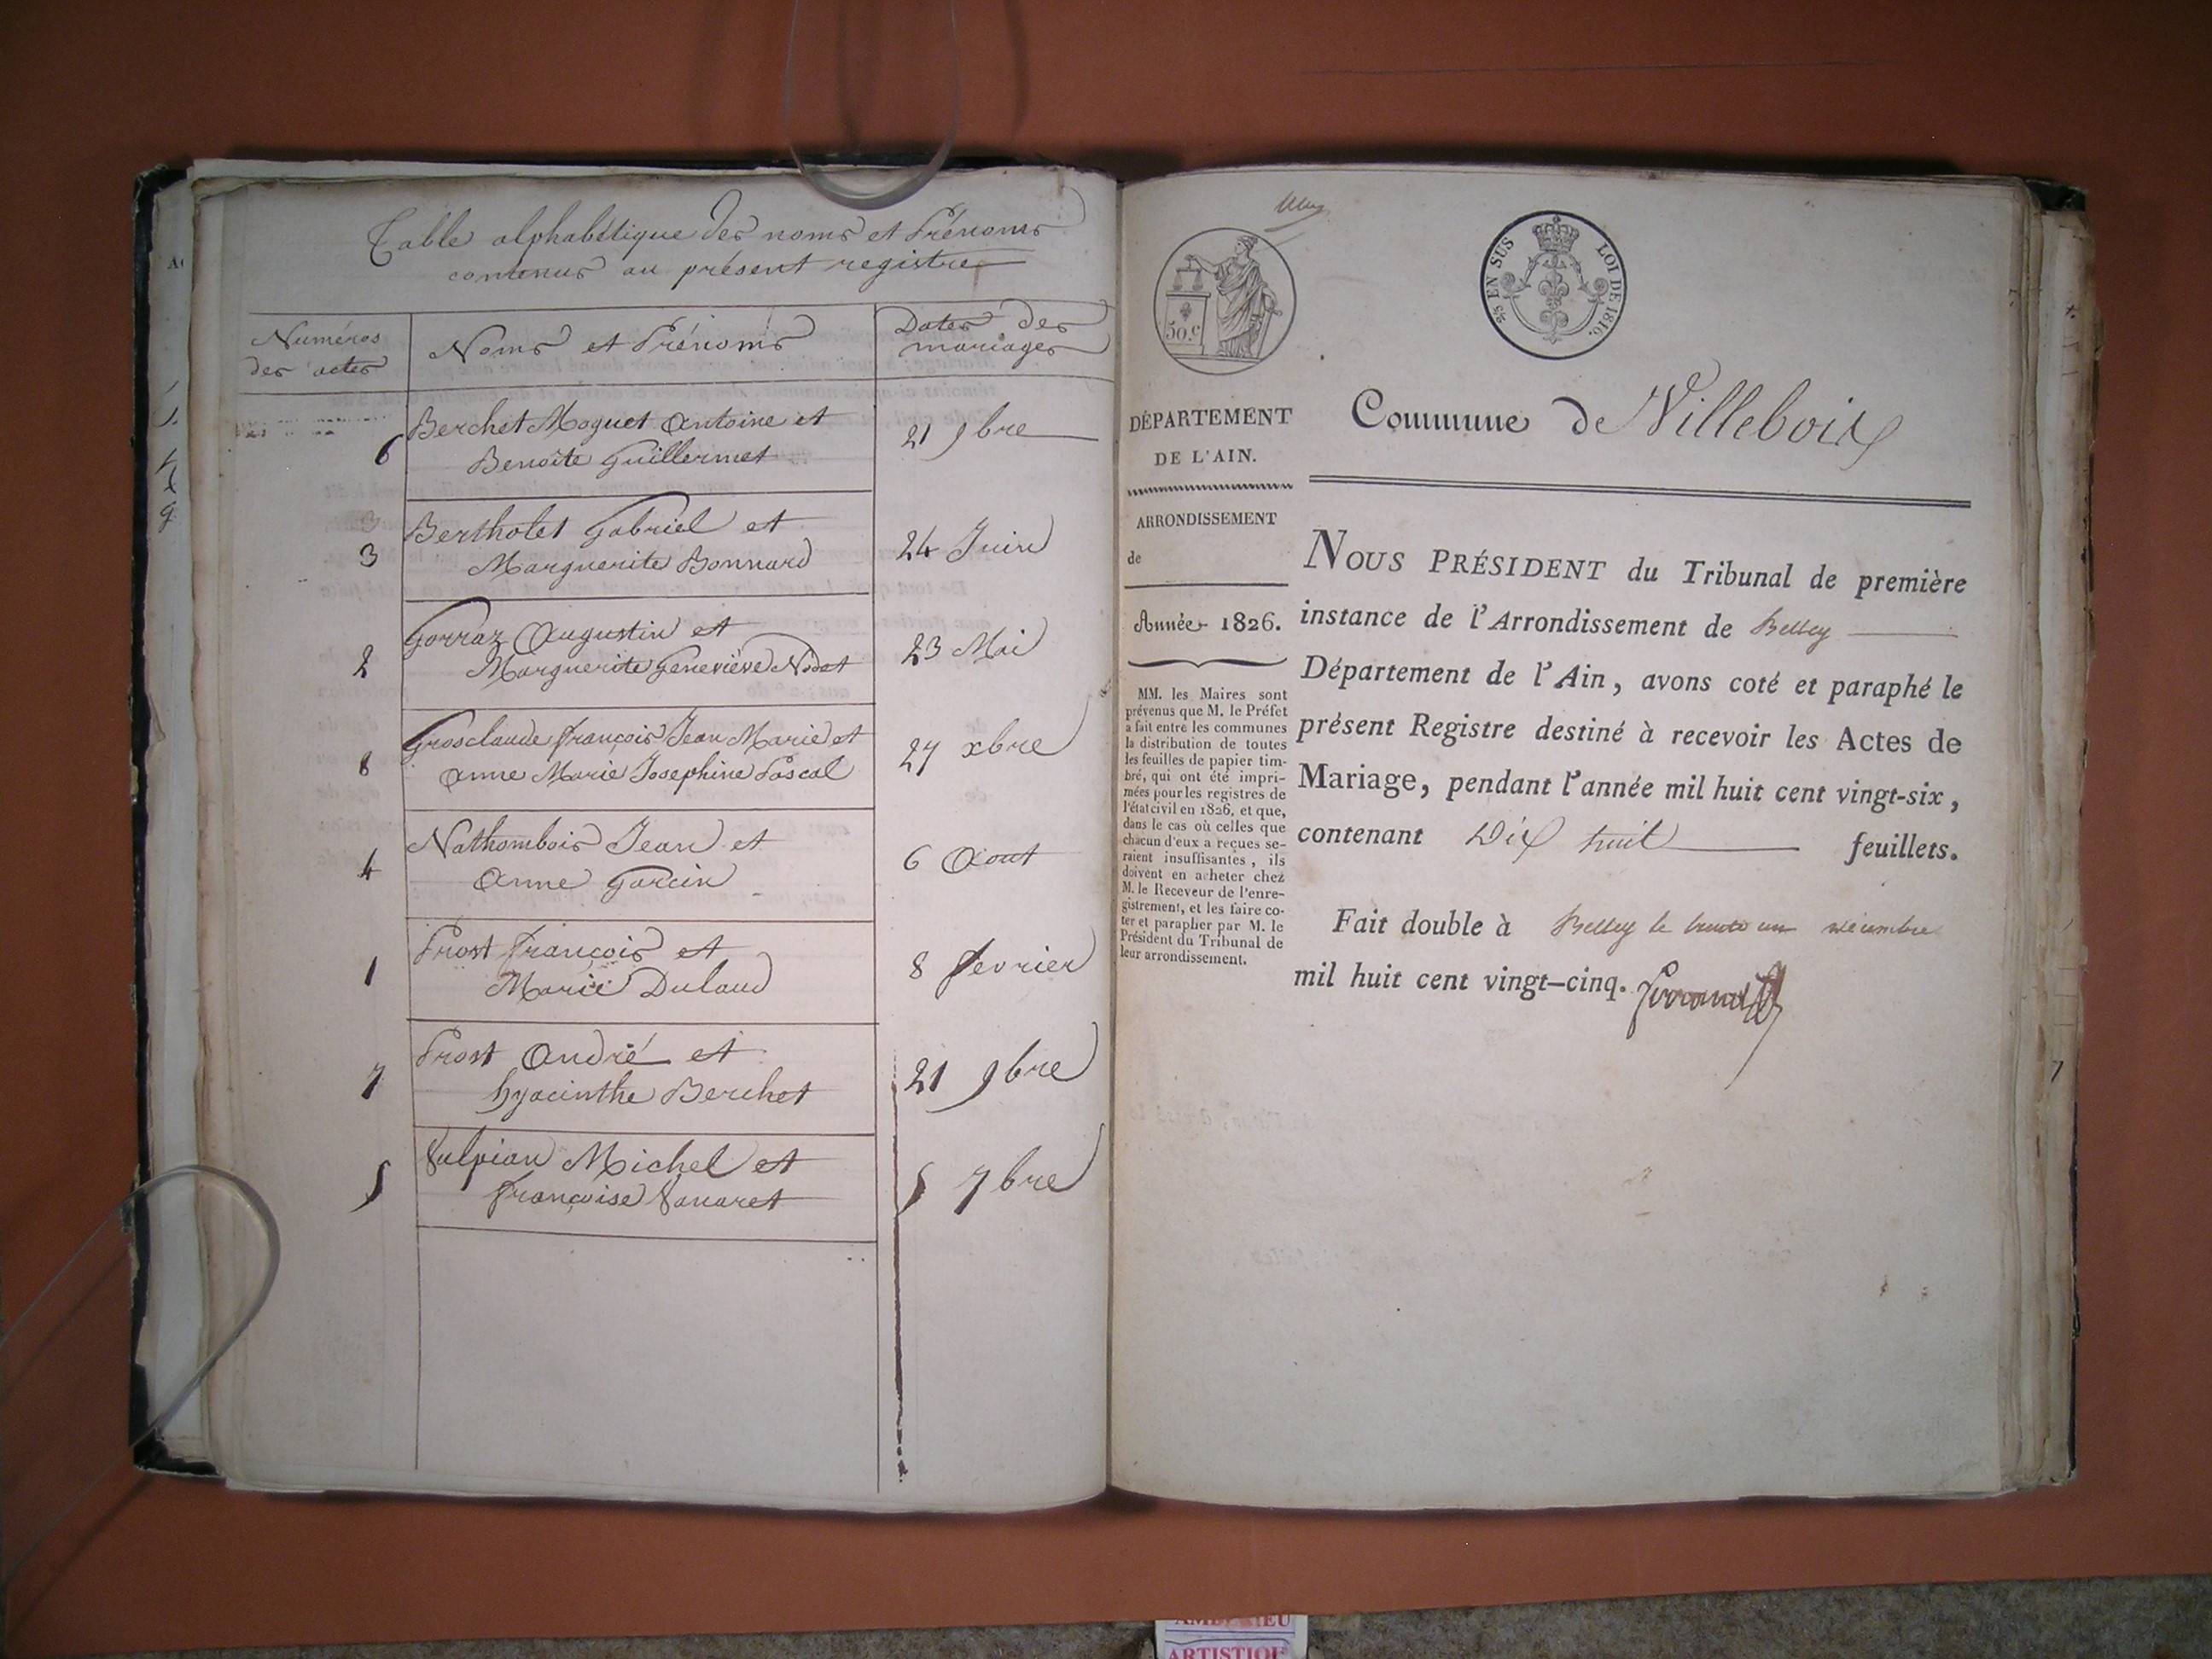 Table alphabétique des noms et Prénoms
contenus au présent registre
Numéros
des actes
Noms et Prénoms
Dates des
mariages
6
Berchet Moguet Antoine et
Benoite Guillermet
21 9bre
3
Bertholet Gabriel et
Marguerite Bonnard
24 Juin
2
Gorraz Augustin et
Marguerite Geneviève Nodet
23 Mai
8
Grosclaude François Jean Marie et
Anne Marie Josephine Pascal
27 xbre
4
Nathombois Jean et
Anne Garcin
6 Aout
1
Prost François et
Marie Dulaud
8 fevrier
7
Prost André et
hyacinthe Berchet
21 9bre
5
Vulpian Michel et
françoise Vanaret
5 7bre
50.c
25 EN SUS LOI DE 1816.
DÉPARTEMENT
DE L'AIN.
ARRONDISSEMENT
de
Année 1826.
MM. les Maires sont
prévenus que M. le Préfet
a fait entre les communes
la distribution de toutes
les feuilles de papier tim-
bré, qui ont été impri-
mées pour les registres de
l'état civil en 1826, et que,
dans le cas où celles que
chacun d'eux a reçues se-
raient insuffisantes, ils
doivent en acheter chez
M. le Receveur de l'enre-
gistrement, et les faire co-
ter et parapher par M. le
Président du Tribunal de
leur arrondissement.
Commune de Villebois
NOUS PRÉSIDENT du Tribunal de première
instance de l'Arrondissement de Belley
Département de l'Ain, avons coté et paraphé le
présent Registre destiné à recevoir les Actes de
Mariage, pendant l'année mil huit cent vingt-six,
contenant Dix huit feuillets.
Fait double à Belley le trente un décembre
mil huit cent vingt-cinq.
ARTISTIQUE